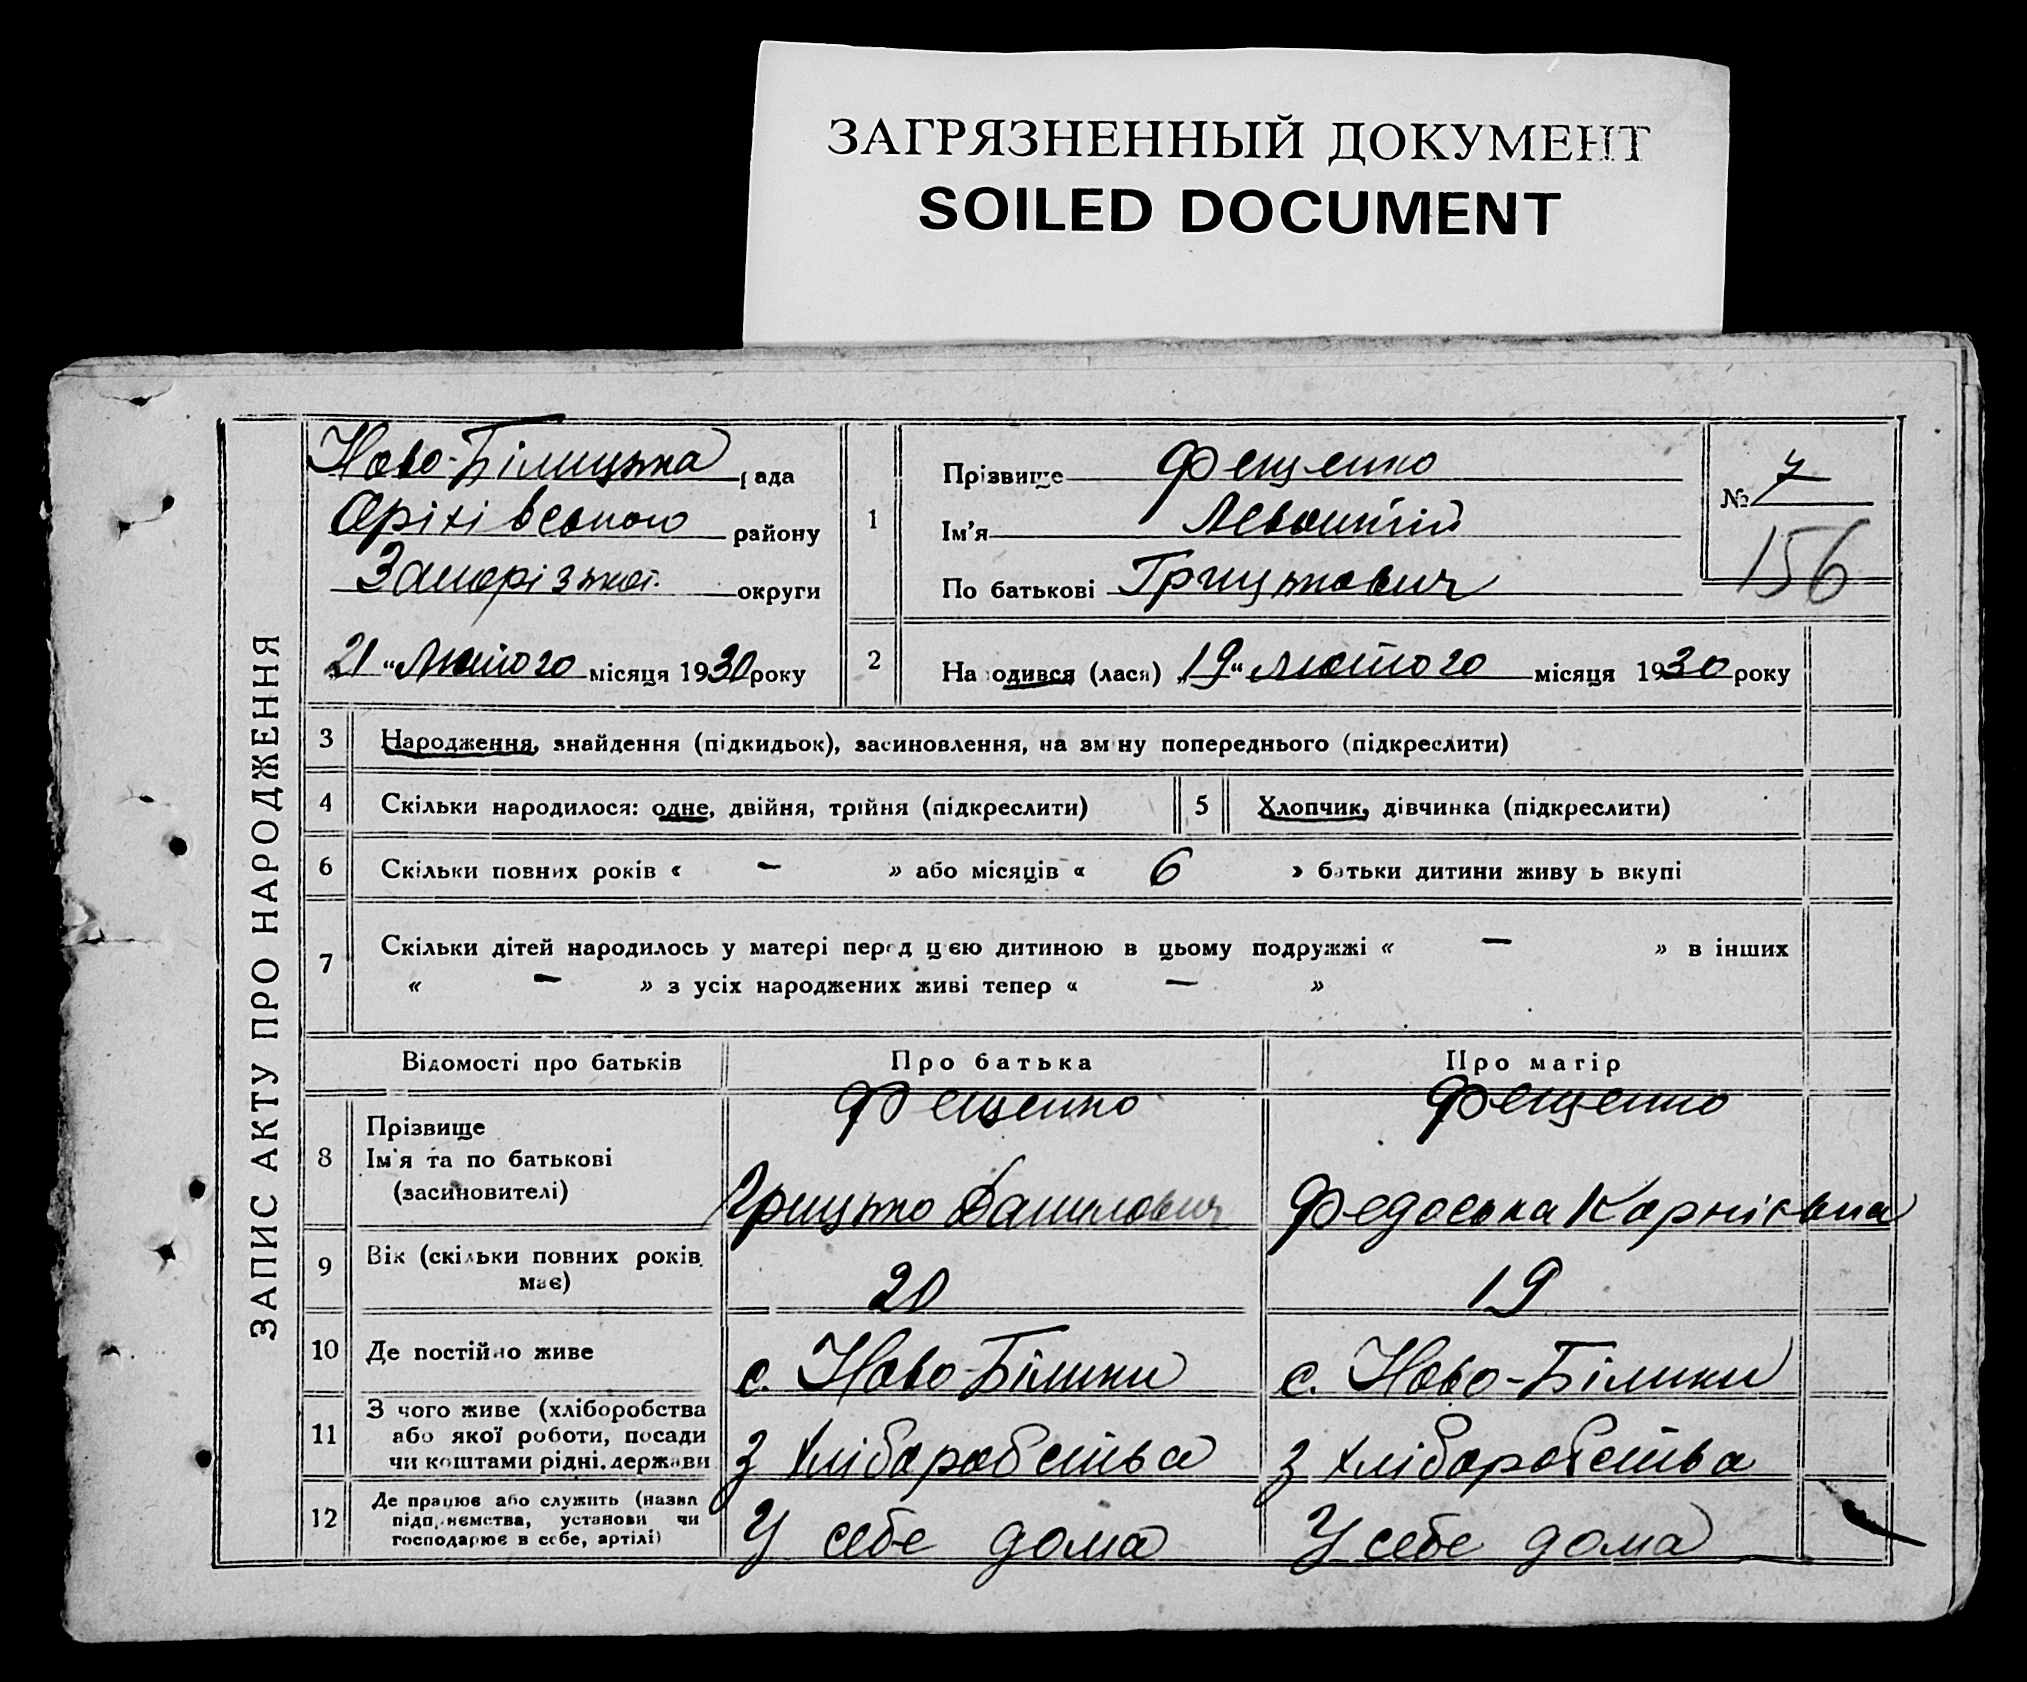 ЗАГРЯЗНЕННЫЙ ДОКУМЕНТ
SOILED DOCUMENT
ЗАПИС АКТУ ПРО НАРОДЖЕННЯ
Ново-Білицька рада
Оріхівського району
Запорізької округи
21 "Лютого місяця 1930 року
1
Прізвище Фещенко
Ім'я
По батькові Грицькович
№ 7
156
2
Народився (лася) „19" лютого місяця 1930 року
3 Народження, знайдення (підкидьок), засиновлення, на зміну попереднього (підкреслити)
4 Скільки народилося: одне, двійня, трійня (підкреслити)
5 Хлопчик, дівчинка (підкреслити)
6 Скільки повних років « — » або місяців « 6 » батьки дитини живуть вкупі
7 Скільки дітей народилось у матері перед цією дитиною в цьому подружжі « — » в інших
« — » з усіх народжених живі тепер « — »
Відомості про батьків Про батька Про матір
8 Прізвище
Ім'я та по батькові
(засиновителі)
Фещенко Фещенко
Грицько Данилович Федоська Корніївна
9 Вік (скільки повних років має) 20 19
10 Де постійно живе с. Ново-Білики с. Ново-Білики
11 З чого живе (хліборобства
або якої роботи, посади
чи коштами рідні, держави
з хліборобства з хліборобства
12 Де працює або служить (назва
підприємства, установи чи
господарює в себе, артілі)
У себе дома У себе дома